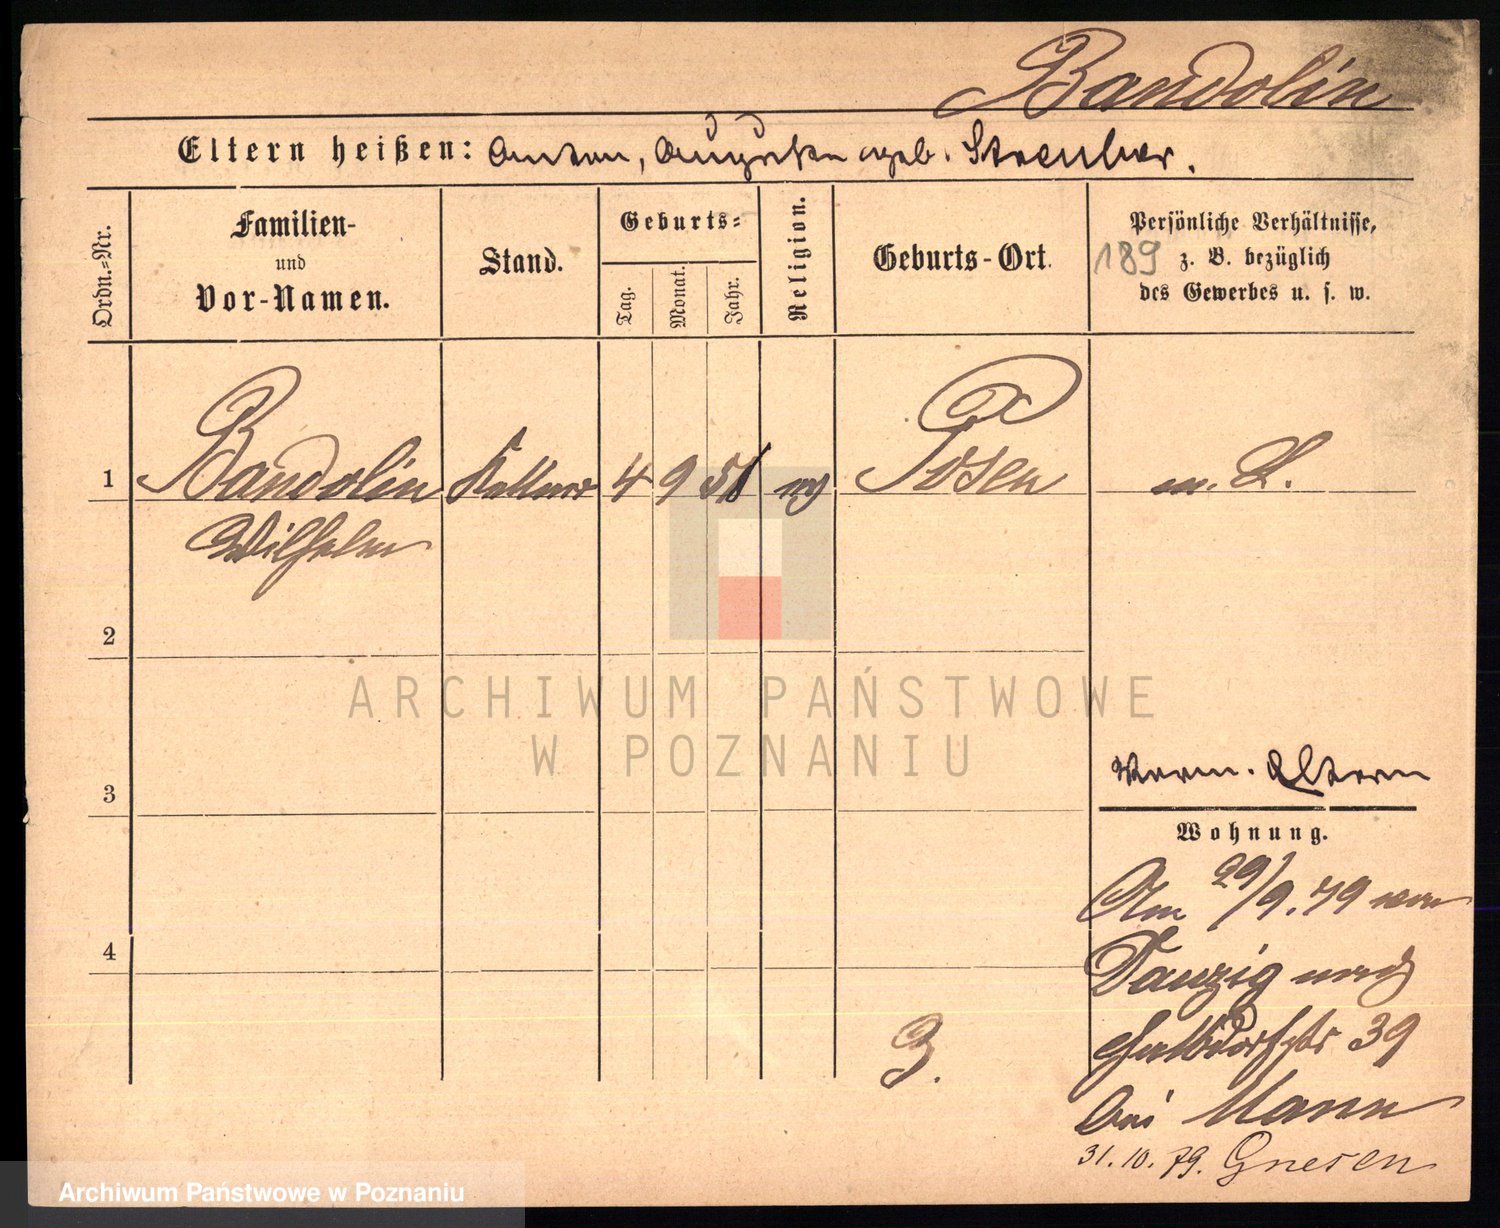 Bandolin
Eltern heißen: Anton, Auguste geb. Streuber.
Ordn.-Nr.
Familien-
und
Vor-Namen.
Stand.
Geburts-
Tag.
Monat.
Jahr.
Religion.
Geburts-Ort.
Persönliche Verhältnisse,
z. B. bezüglich
des Gewerbes u. s. w.
189
1 Bandolin Kellner 4 9 58 Posen m. L.
Wilhelm
2
ARCHIWUM PAŃSTWOWE
W POZNANIU
3
Verm. Eltern
Wohnung.
4
Am 29/9. 79 von
Danzig nach
Halbdorfstr 39
bei Mann
31. 10. 79. Gnesen
3.
Archiwum Państwowe w Poznaniu